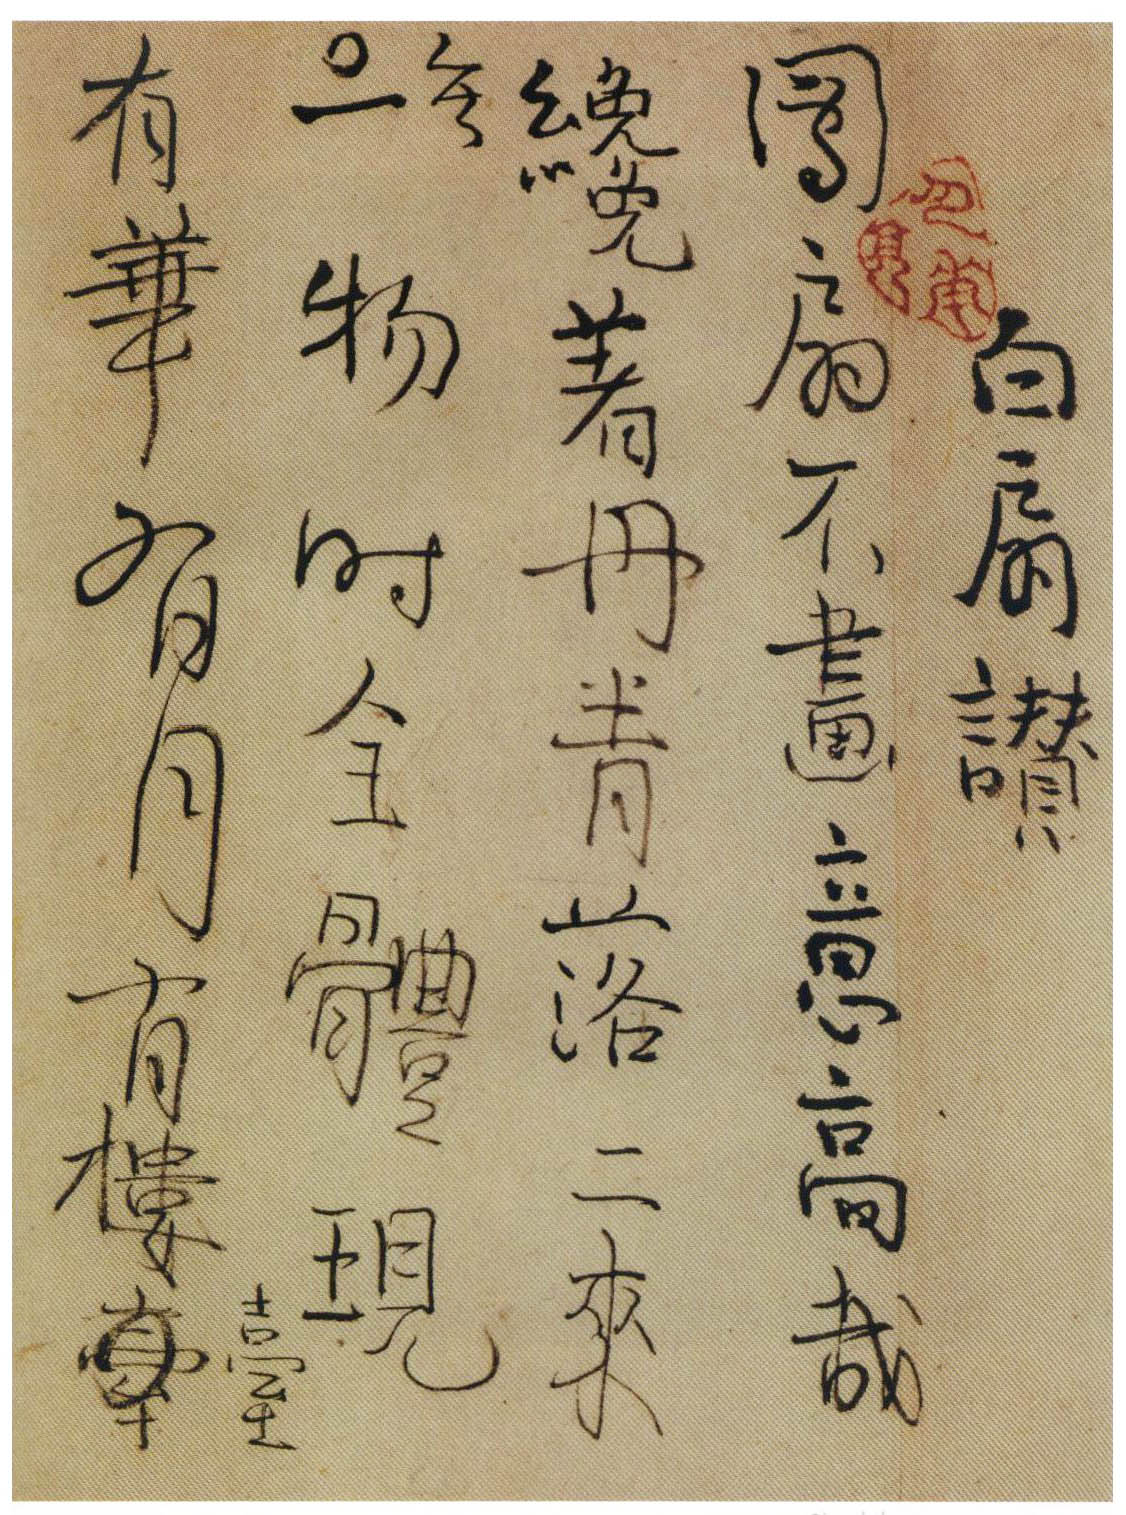 白扇讚
團扇不畫意高哉
纔著丹青落二來
無一物時全體現
有華有月有樓臺